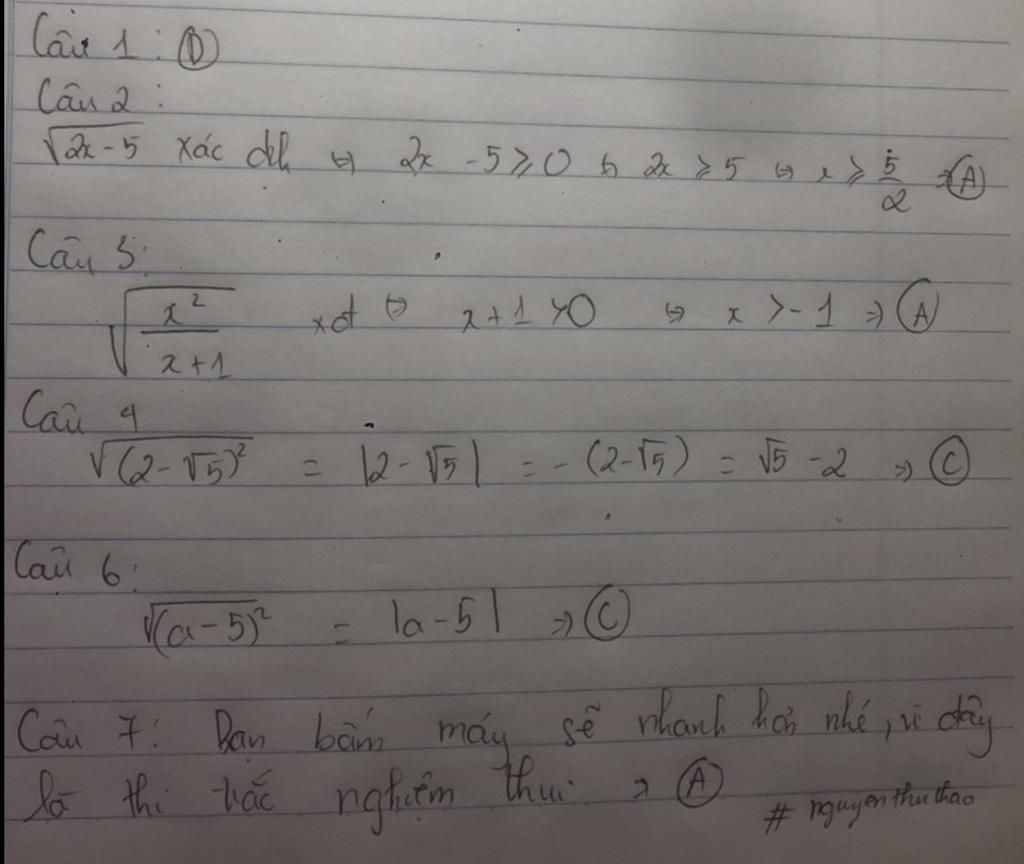 Câu 1: (D)
Câu 2:
√(2x - 5) xác đdh ⇔ 2x - 5 ⩾ 0 ⇔ 2x ⩾ 5 ⇔ x ⩾ 5/2 ⇒ (A)
Câu 5:
√(x²/(x+1)) xđ ⇔ x + 1 > 0 ⇔ x > -1 ⇒ (A)
Câu 4
√((2 - √5)²) = |2 - √5| = -(2 - √5) = √5 - 2 ⇒ (C)
Câu 6:
√((a - 5)²) = |a - 5| ⇒ (C)
Câu 7: Bạn bấm máy sẽ nhanh hơn nhé, vì đây
là thi trắc nghiệm thui ⇒ (A)
# nguyenthuthao